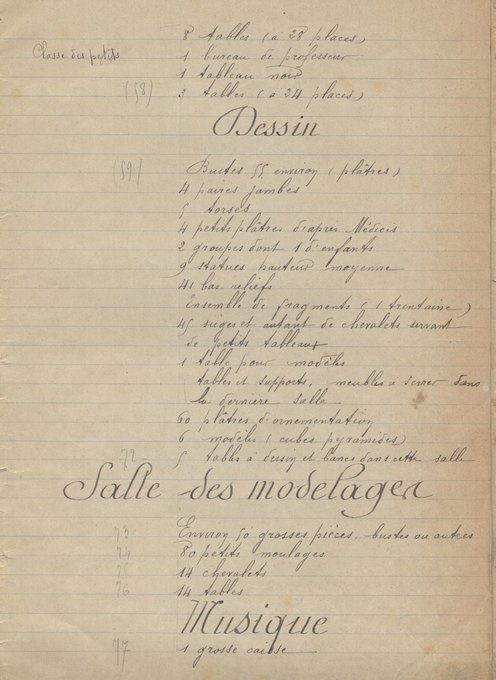 8 tables (à 28 places)
Classe des petits
1 bureau de professeur
1 tableau noir
(58) 3 tables (à 24 places)
Dessin
(59) Bustes 55 environ (plâtres)
4 paires jambes
5 torses
4 petits plâtres d'après Médicis
2 groupes dont 1 d'enfants
9 statues hauteur moyenne
41 bas reliefs
Ensemble de fragments (1 trentaine)
45 sièges et autant de chevalets servant
de petits tableaux
1 table pour modèles
tables et supports, meubles à serrer dans
la dernière salle
60 plâtres d'ornementation
6 modèles (cubes pyramides)
72 - 5 tables à dessin et bancs dans cette salle
Salle des modelages
73 Environ 50 grosses pièces, bustes ou autres
74 80 petits moulages
75 14 chevalets
76 14 tables
Musique
77 1 grosse caisse